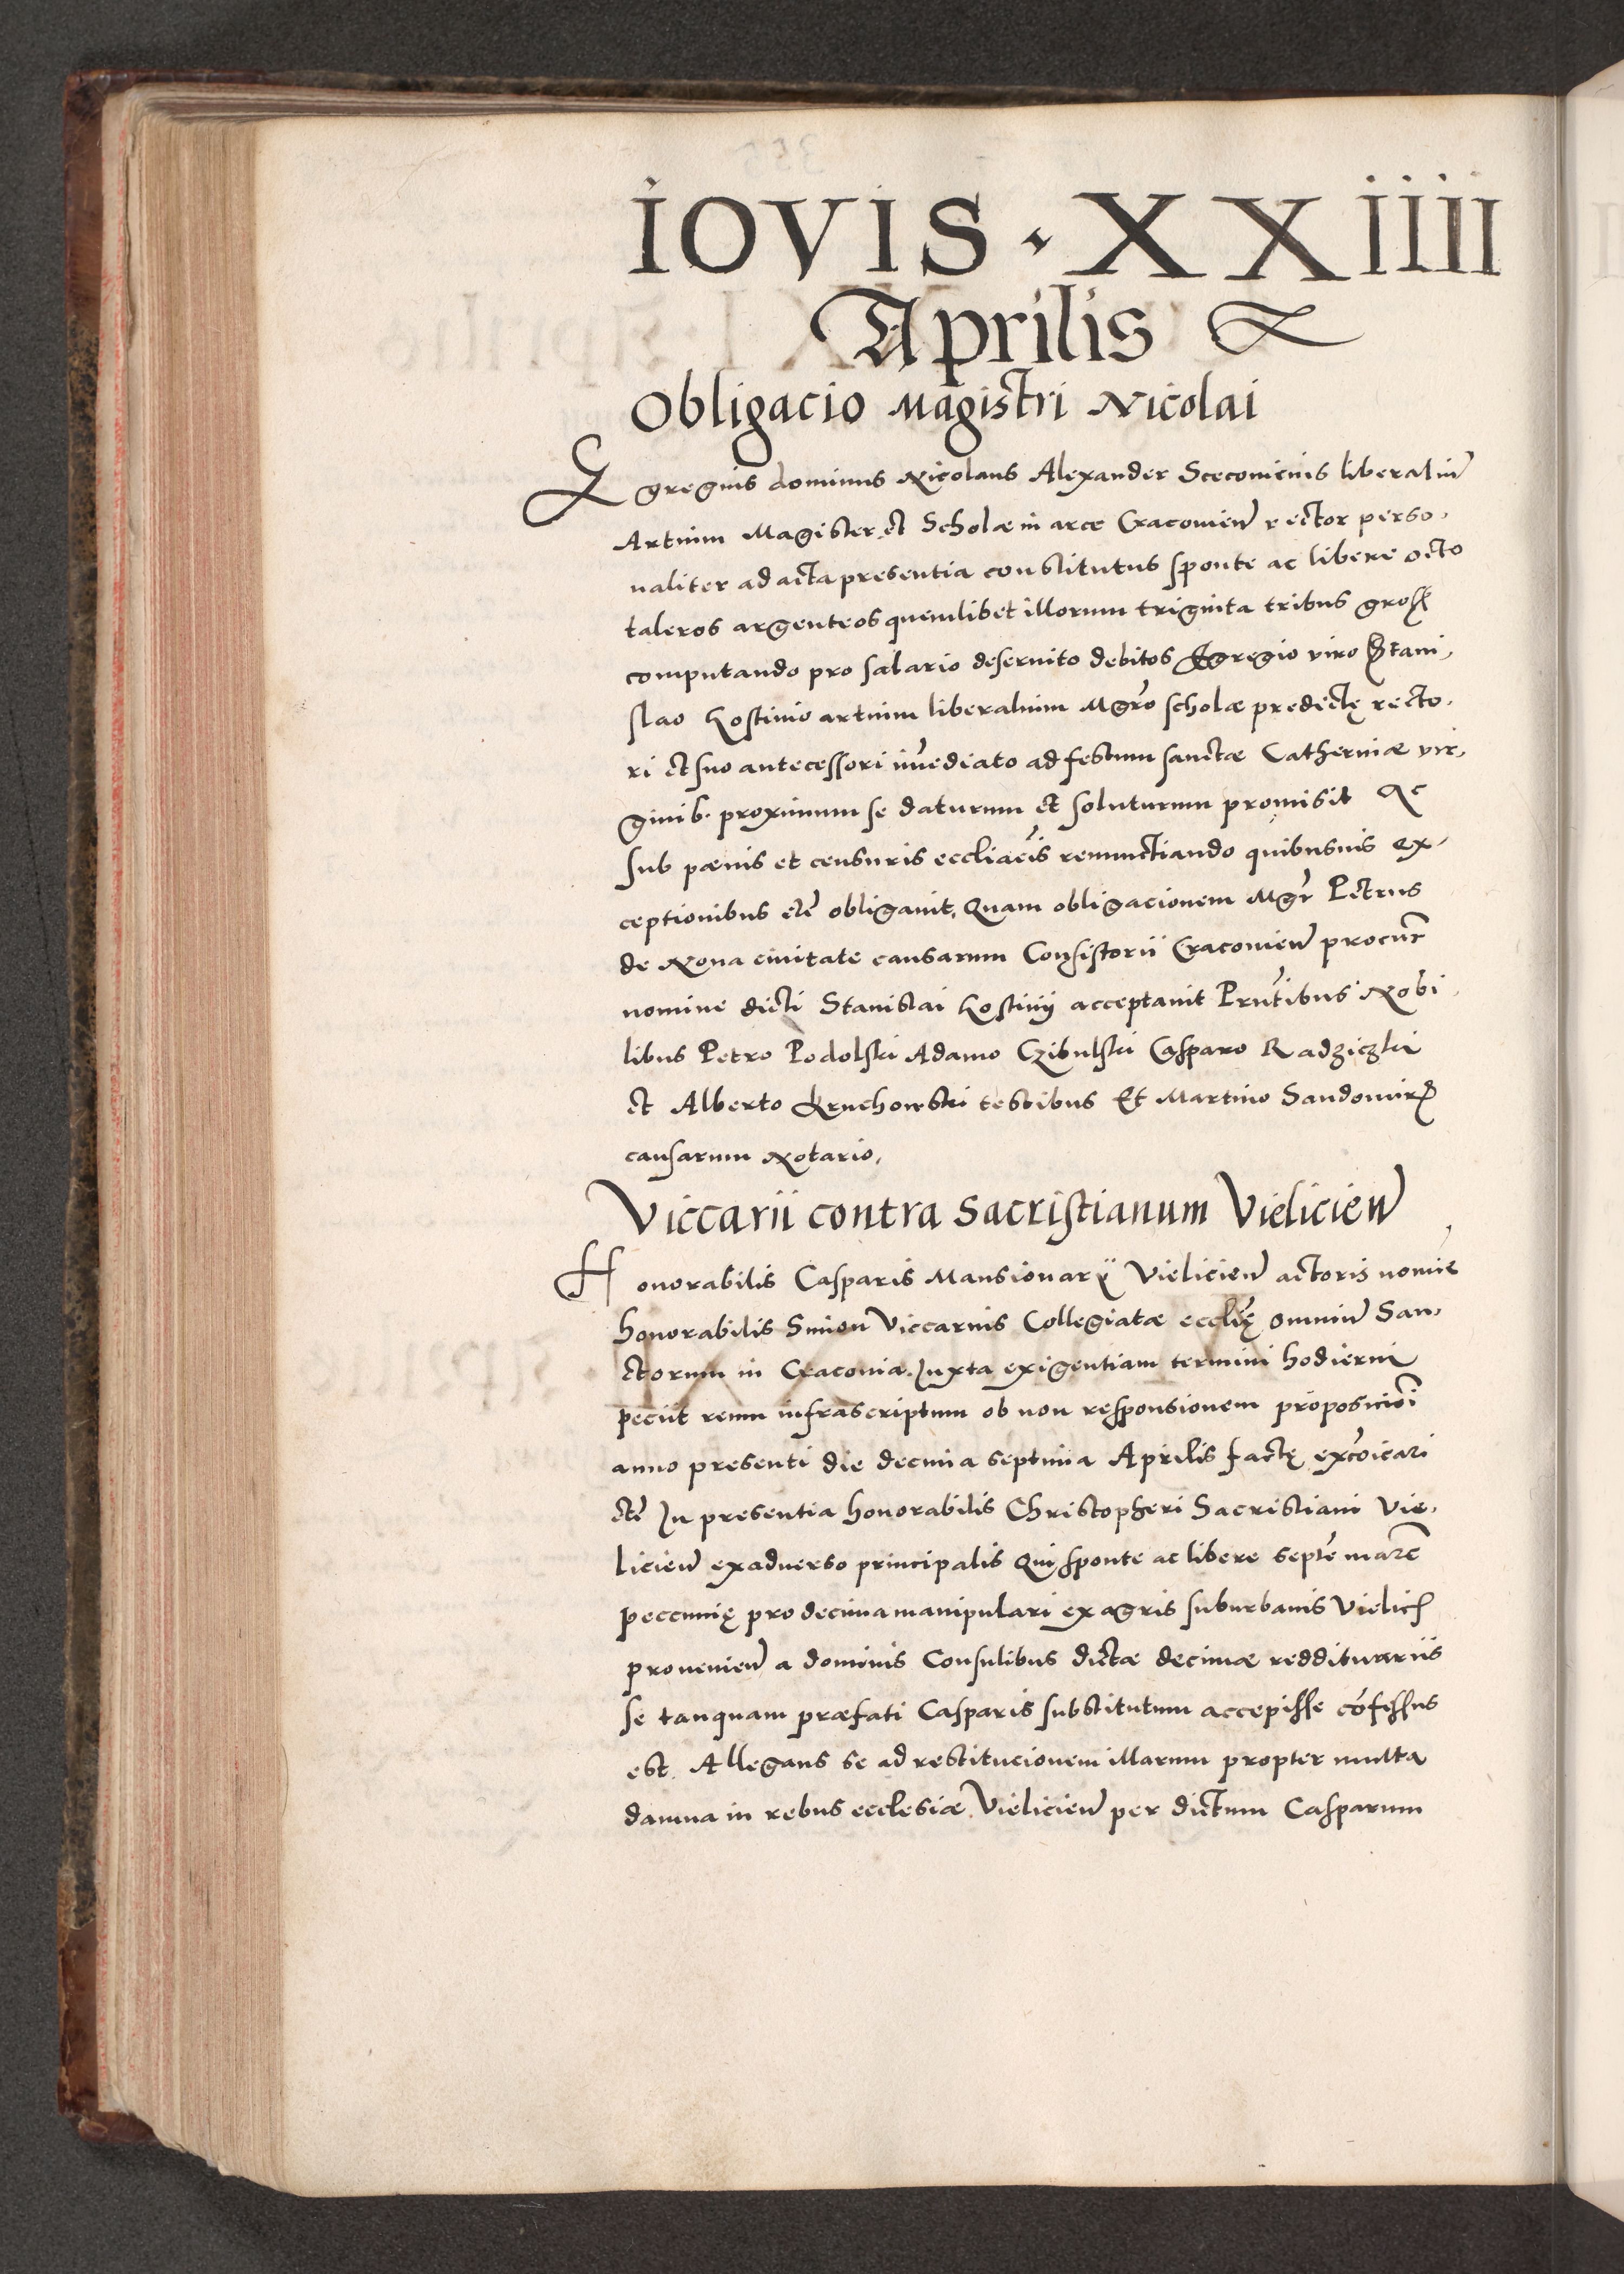 IOVIS · XXIIII
Aprilis
Obligacio Magistri Nicolai
Egregius dominus Nicolaus Alexander Scecovicius liberaliu͂
Artium Magister et Scholæ in arce Cracovien͂ rector perso-
naliter ad acta presentia constitutus sponte ac libere octo
taleros argenteos quemlibet illorum triginta tribus gross
computando pro salario deservito debitos Egregio viro Stani-
slao Hostivio artium liberalium Mgro scholæ predictę recto-
ri et suo antecessori im̃ediato ad festum sanctæ Catherinæ vir-
ginis proximum se daturum et soluturum promisit Ac
sub pænis et censuris eccliacis renunctiando quibusvis ex-
ceptionibus etc̃ obligavit, Quam obligacionem Mgr̃ Petrus
de Nova civitate causarum Consistorii Cracovien͂ procur̃
nomine dicti Stanislai Hostivij acceptavit Pñtibus Nobi-
libus Petro Podolski Adamo Czibulski Casparo Radziczki
et Alberto Kruchowski testibus Et Martino Sandomir͂
causarum Notario,
Viccarii contra Sacristianum Vielicien͂
Honorabilis Casparis Mansionarij Vielicien͂ actoris nomie
honorabilis Simon Viccarius Collegiatæ eccl̃ię omniu͂ San-
ctorum in Cracovia. Juxta exigentiam termini hodierni
peciit reum infrascriptum ob non responsionem proposicioi͂
anno presenti die decima septima Aprilis factę exc̃oicari
etc̃ In presentia honorabilis Christopheri Sacristiani Vie-
licien͂ ex adverso principalis Qui sponte ac libere septe͂ marc͂
peccunię pro decima manipulari ex agris suburbanis Vielic͂
provenien͂ a dominis Consulibus dictæ decimæ reddituariis
se tanquam præfati Casparis substitutum accepisse co͂fessus
est. Allegans se ad restitucionem illarum propter multa
damna in rebus ecclesiæ Vielicien͂ per dictum Casparum